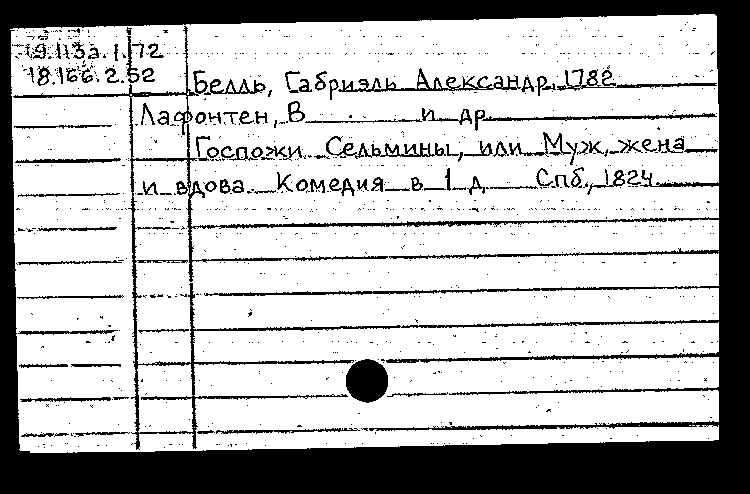 19.113а.1.72
18.166.2.52
Белль, Габриэль Александр, 1782
Лафонтен, В и др
Госпожи Сельмины, или Муж, жена
и вдова. Комедия в 1 д Спб., 1824